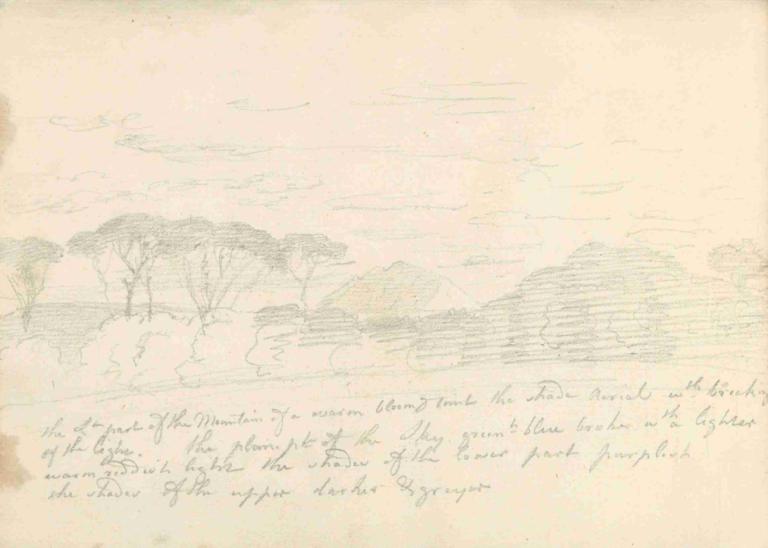 the Lt part of the Mountain of a warm bloomy tint the shade Aerial wth
of the light. the plain pt of the Sky greenh blue broken wth a lighter
warm reddish light the shades of the lower part purplish
the shades of the upper darker & greyer